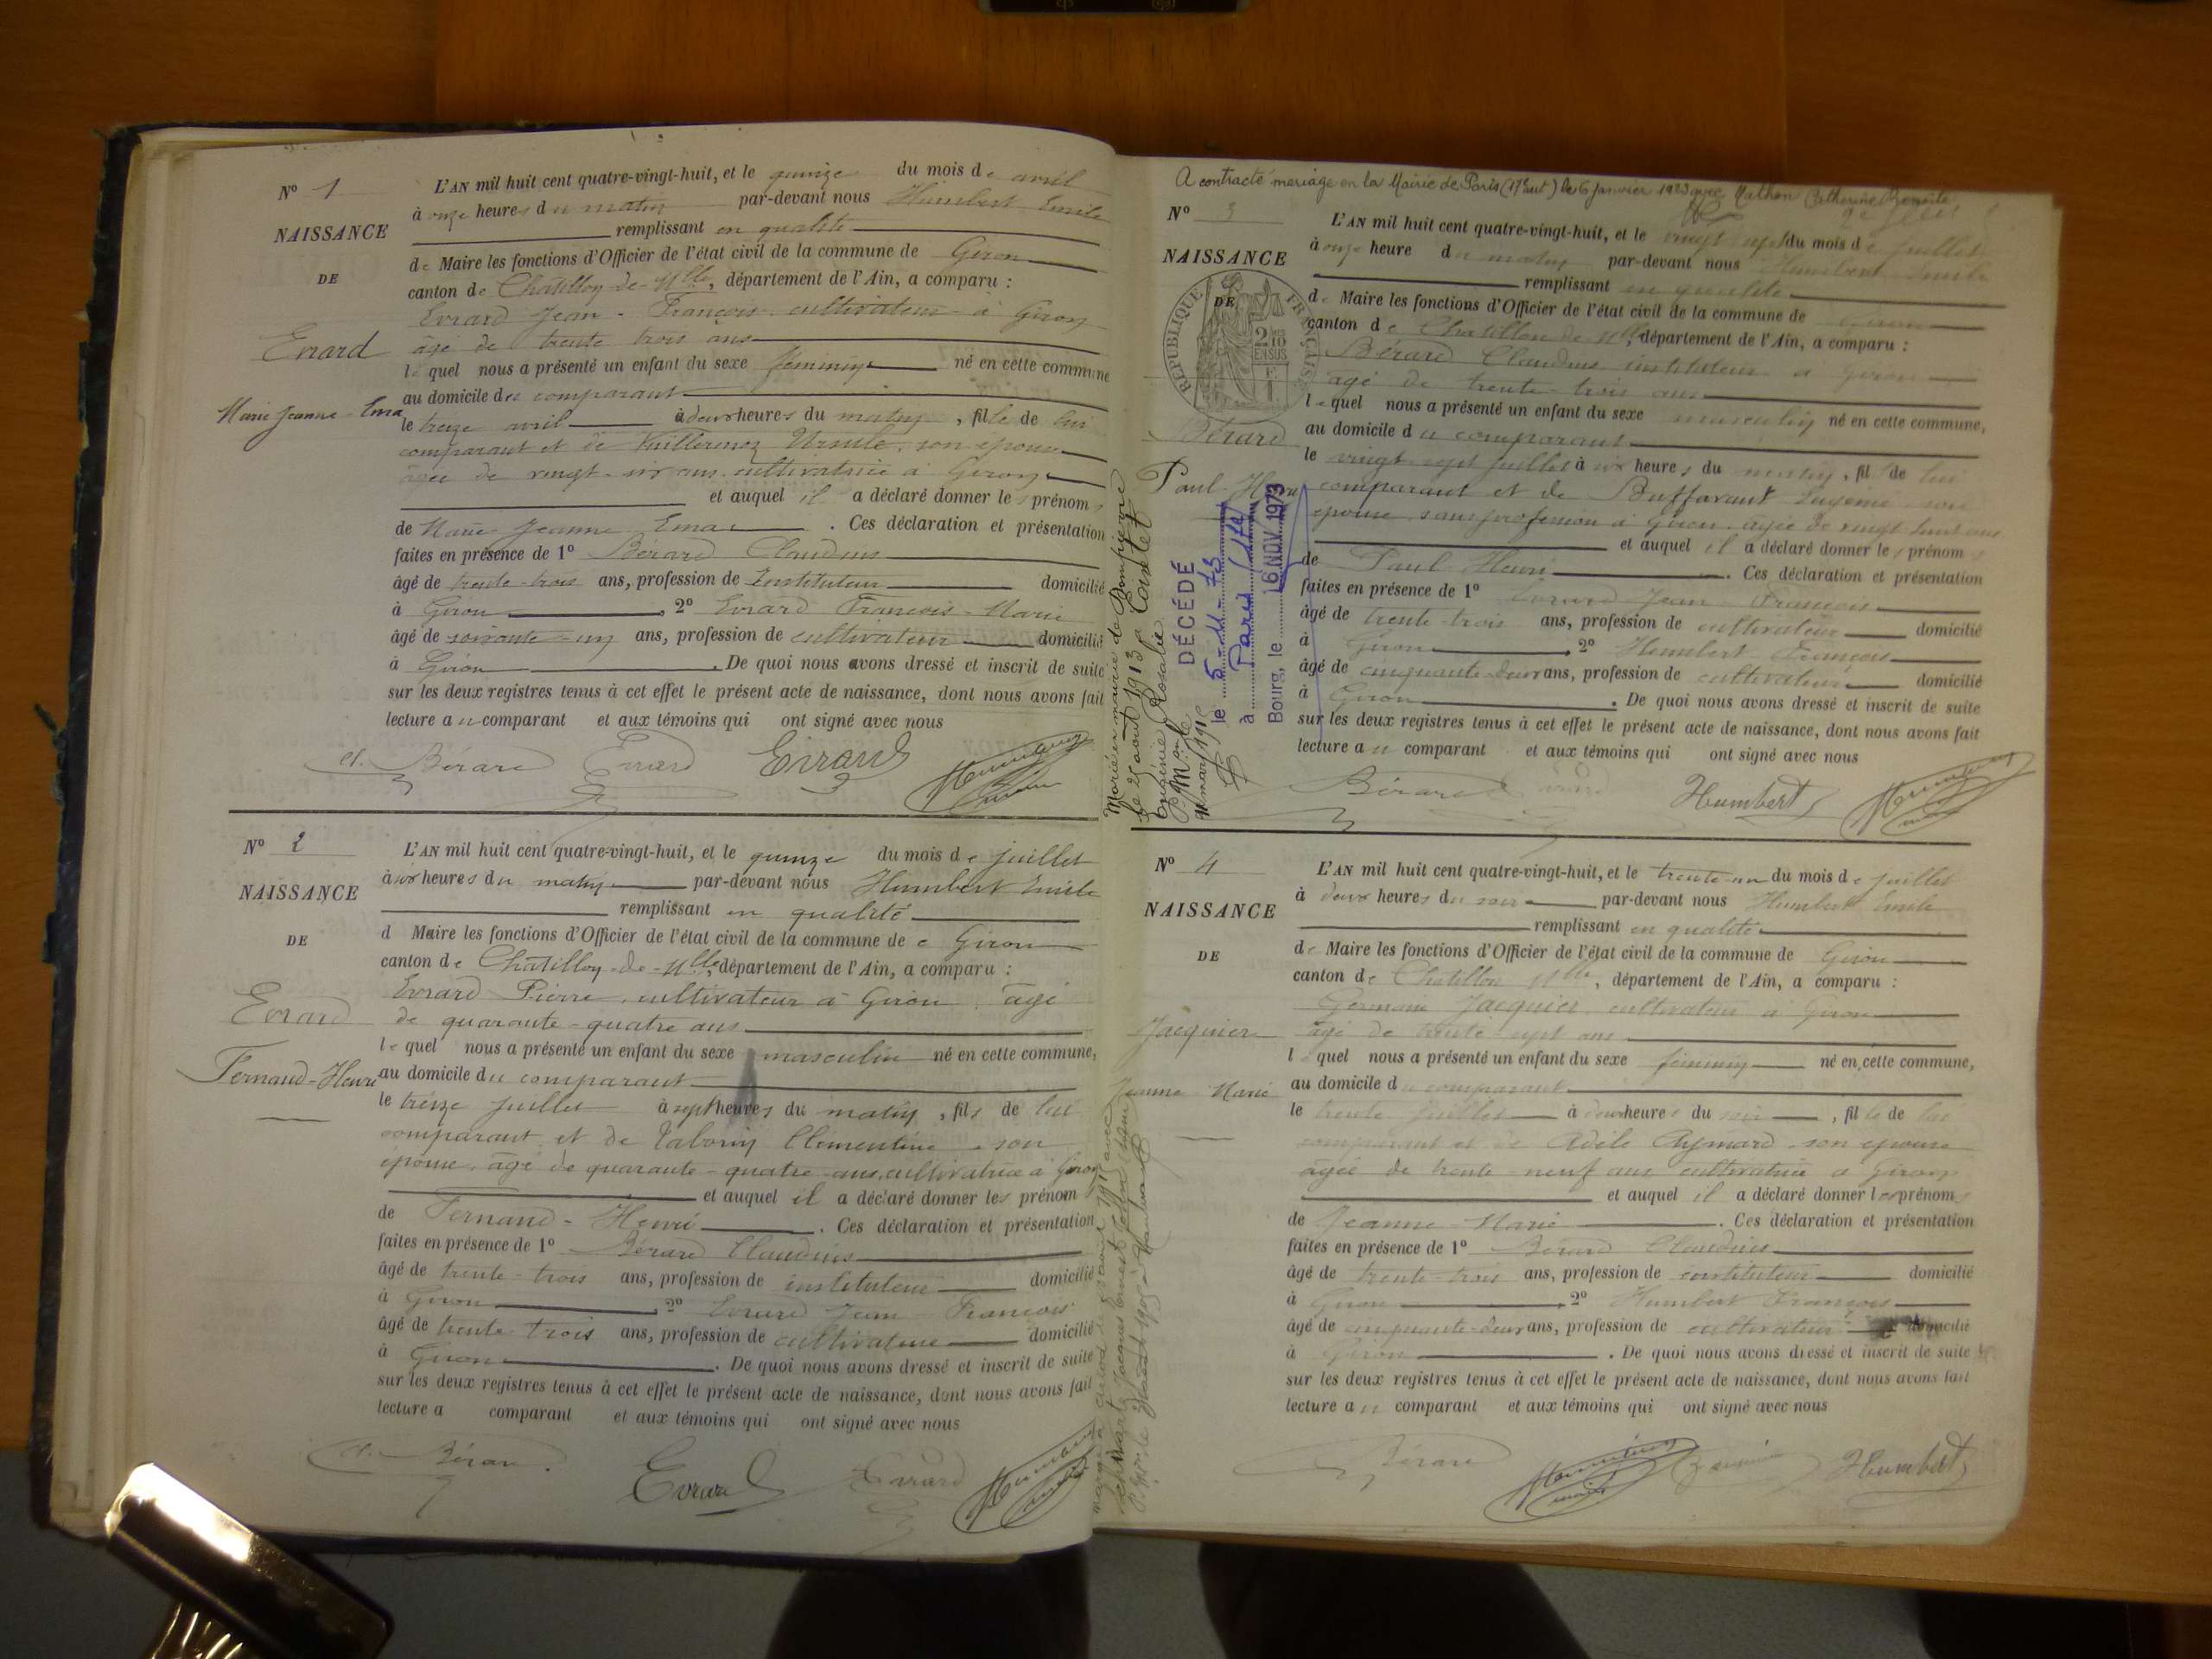 Nº 1
NAISSANCE
DE
Evrard
Marie Jeanne Ema
L'AN mil huit cent quatre-vingt-huit, et le quinze du mois de avril
à onze heures du matin par-devant nous Humbert Emile
remplissant en qualité
de Maire les fonctions d'Officier de l'état civil de la commune de Giron
canton de Chatillon-de-Mlle, département de l'Ain, a comparu :
Evrard Jean-François cultivateur à Giron
âgé de trente trois ans
lequel nous a présenté un enfant du sexe féminin né en cette commune
au domicile du comparant
le treize avril à deux heures du matin, fille de lui
comparant et de Vuillermoz Ursule, son épouse
âgée de vingt-six ans cultivatrice à Giron
et auquel il a déclaré donner les prénoms
de Marie Jeanne Ema. Ces déclaration et présentation
faites en présence de 1º Bérard Claudius
âgé de trente-trois ans, profession de Instituteur domicilié
à Giron, 2º Evrard François-Marie
âgé de soixante-un ans, profession de cultivateur domicilié
à Giron. De quoi nous avons dressé et inscrit de suite
sur les deux registres tenus à cet effet le présent acte de naissance, dont nous avons fait
lecture au comparant et aux témoins qui ont signé avec nous
Cl. Bérard Evrard Evrard Humbert
Nº 2
NAISSANCE
DE
Evrard
Fernand-Henri
L'AN mil huit cent quatre-vingt-huit, et le quinze du mois de juillet
à six heures du matin par-devant nous Humbert Emile
remplissant en qualité
d Maire les fonctions d'Officier de l'état civil de la commune de Giron
canton de Chatillon-de-Mlle, département de l'Ain, a comparu :
Evrard Pierre, cultivateur à Giron âgé
de quarante-quatre ans
lequel nous a présenté un enfant du sexe masculin né en cette commune,
au domicile du comparant
le treize juillet à sept heures du matin, fils de lui
comparant et de Tabouriy Clémentine son
épouse, âgé de quarante-quatre ans, cultivatrice à Giron
et auquel il a déclaré donner les prénom
de Fernand-Henri. Ces déclaration et présentation
faites en présence de 1º Bérard Claudius
âgé de trente-trois ans, profession de instituteur domicilié
à Giron, 2º Evrard Jean François
âgé de trente trois ans, profession de cultivateur domicilié
à Giron. De quoi nous avons dressé et inscrit de suite
sur les deux registres tenus à cet effet le présent acte de naissance, dont nous avons fait
lecture a comparant et aux témoins qui ont signé avec nous
Cl. Bérard Evrard Evrard Humbert
A contracté mariage en la Mairie de Paris (17e arrt) le 6 janvier 1923 avec Mathon Catherine Benoite
Nº 3
NAISSANCE
DE
RÉPUBLIQUE FRANÇAISE
2/10 EN SUS
Bérard
Paul Henri
Marié en mairie de Dompierre
le 25 août 1913
Eugénie Rosalie
DÉCÉDÉ
le 5-11-73
à Paris 17e
Bourg, le 16 NOV. 1973
L'AN mil huit cent quatre-vingt-huit, et le vingt sept du mois de juillet
à onze heure du matin par-devant nous Humbert Emile
remplissant en qualité
de Maire les fonctions d'Officier de l'état civil de la commune de Giron
canton de Chatillon de Mlle, département de l'Ain, a comparu :
Bérard Claudius instituteur à Giron
âgé de trente-trois ans
lequel nous a présenté un enfant du sexe masculin né en cette commune,
au domicile du comparant
le vingt sept juillet à six heures du matin, fils de lui
comparant et de Buffavant Eugénie son
épouse, sans profession à Giron, âgée de vingt huit ans
et auquel il a déclaré donner les prénoms
de Paul Henri. Ces déclaration et présentation
faites en présence de 1º Evrard Jean François
âgé de trente-trois ans, profession de cultivateur domicilié
à Giron 2º Humbert François
âgé de cinquante-deux ans, profession de cultivateur domicilié
à Giron. De quoi nous avons dressé et inscrit de suite
sur les deux registres tenus à cet effet le présent acte de naissance, dont nous avons fait
lecture au comparant et aux témoins qui ont signé avec nous
Bérard Humbert Humbert
Nº 4
NAISSANCE
DE
Jacquier
Jeanne Marie
L'AN mil huit cent quatre-vingt-huit, et le trente-un du mois de juillet
à deux heures du soir par-devant nous Humbert Emile
remplissant en qualité
de Maire les fonctions d'Officier de l'état civil de la commune de Giron
canton de Chatillon Mlle, département de l'Ain, a comparu :
Germain Jacquier, cultivateur à Giron
âgé de trente sept ans
lequel nous a présenté un enfant du sexe féminin né en cette commune,
au domicile du comparant
le trente juillet à deux heures du soir, fille de lui
comparant et de Adèle Aymard son épouse
âgée de trente-neuf ans cultivatrice à Giron
et auquel il a déclaré donner les prénoms
de Jeanne-Marie. Ces déclaration et présentation
faites en présence de 1º Bérard Claudius
âgé de trente-trois ans, profession de instituteur domicilié
à Giron, 2º Humbert François
âgé de cinquante-deux ans, profession de cultivateur domicilié
à Giron. De quoi nous avons dressé et inscrit de suite
sur les deux registres tenus à cet effet le présent acte de naissance, dont nous avons fait
lecture au comparant et aux témoins qui ont signé avec nous
Bérard Humbert Humbert